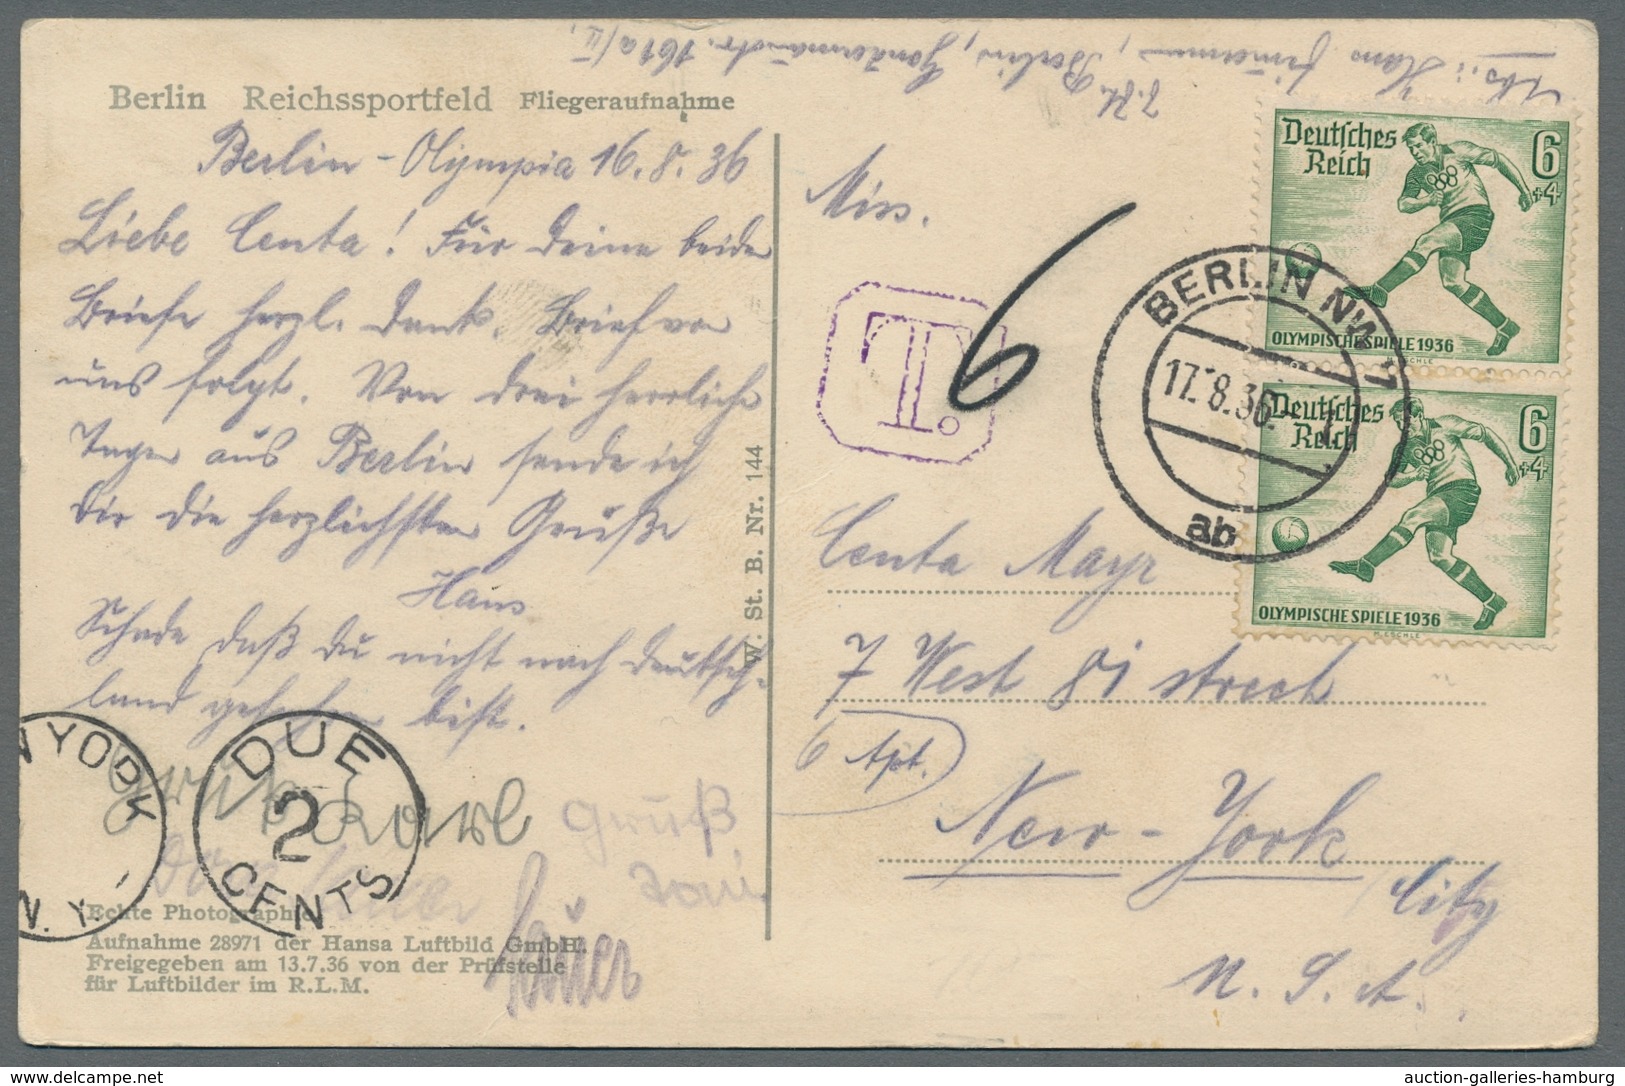 Berlin Reichssportfeld Fliegeraufnahme
Berlin - Olympia 16.8.36
Liebe Centa! Für Deine beiden
Briefe herzl. Dank. Brief von
uns folgt. Von drei herrlichen
Tagen aus Berlin sende ich
Dir die herzlichsten Grüße
Hans
Schade daß Du nicht nach Deutsch-
land gefahren bist.
Gruß Karl
Gruß
Toni
DUE
2
CENTS
N. Y.
Echte Photographie
Aufnahme 28971 der Hansa Luftbild GmbH.
Freigegeben am 13.7.36 von der Prüfstelle
für Luftbilder im R.L.M.
W. St. B. Nr. 144
Abs.: Hans
z.Zt. Berlin, 161a/II.
Miss.
T.
6
Centa Mayr
7 West 81 streeh
6 Apt.
New-York
City
U. S. A.
BERLIN NW 1
17.-8.36.
ab
Deutsches
Reich
6
+4
OLYMPISCHE SPIELE 1936
M. ESCHLE
Deutsches
Reich
6
+4
OLYMPISCHE SPIELE 1936
M. ESCHLE
auction-galleries-hamburg